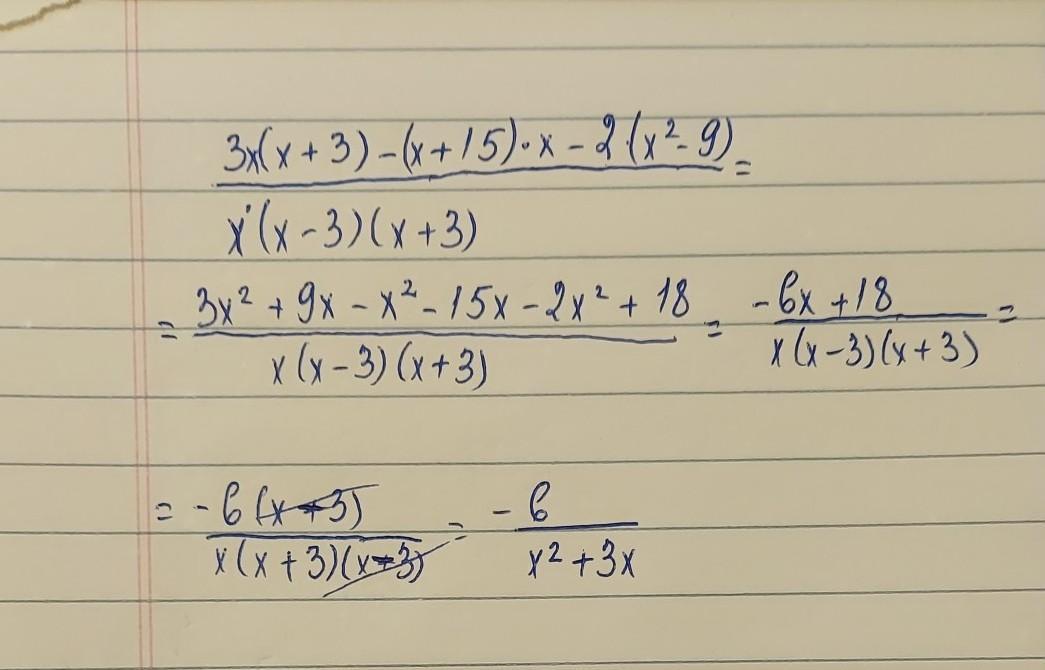 3x(x + 3) - (x + 15) · x - 2 · (x² - 9) =
x · (x - 3)(x + 3)
= 3x² + 9x - x² - 15x - 2x² + 18 = -6x + 18 =
x(x - 3)(x + 3) x(x - 3)(x + 3)
= -6(x - 3) = -6
x(x + 3)(x - 3) x² + 3x